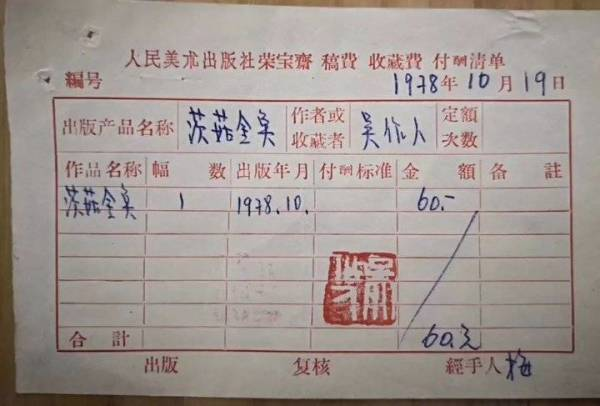 人民美朮出版社荣宝齋 稿費 收藏費 付酬清单
編号 1978年10月19日
出版产品名称 茨菇金魚 作者或收藏者 吴作人 定額次数
作品名称 幅数 出版年月 付酬标准 金額 备註
茨菇金魚 1 1978.10. 60.-
合計 60.元
出版 复核 經手人 梅